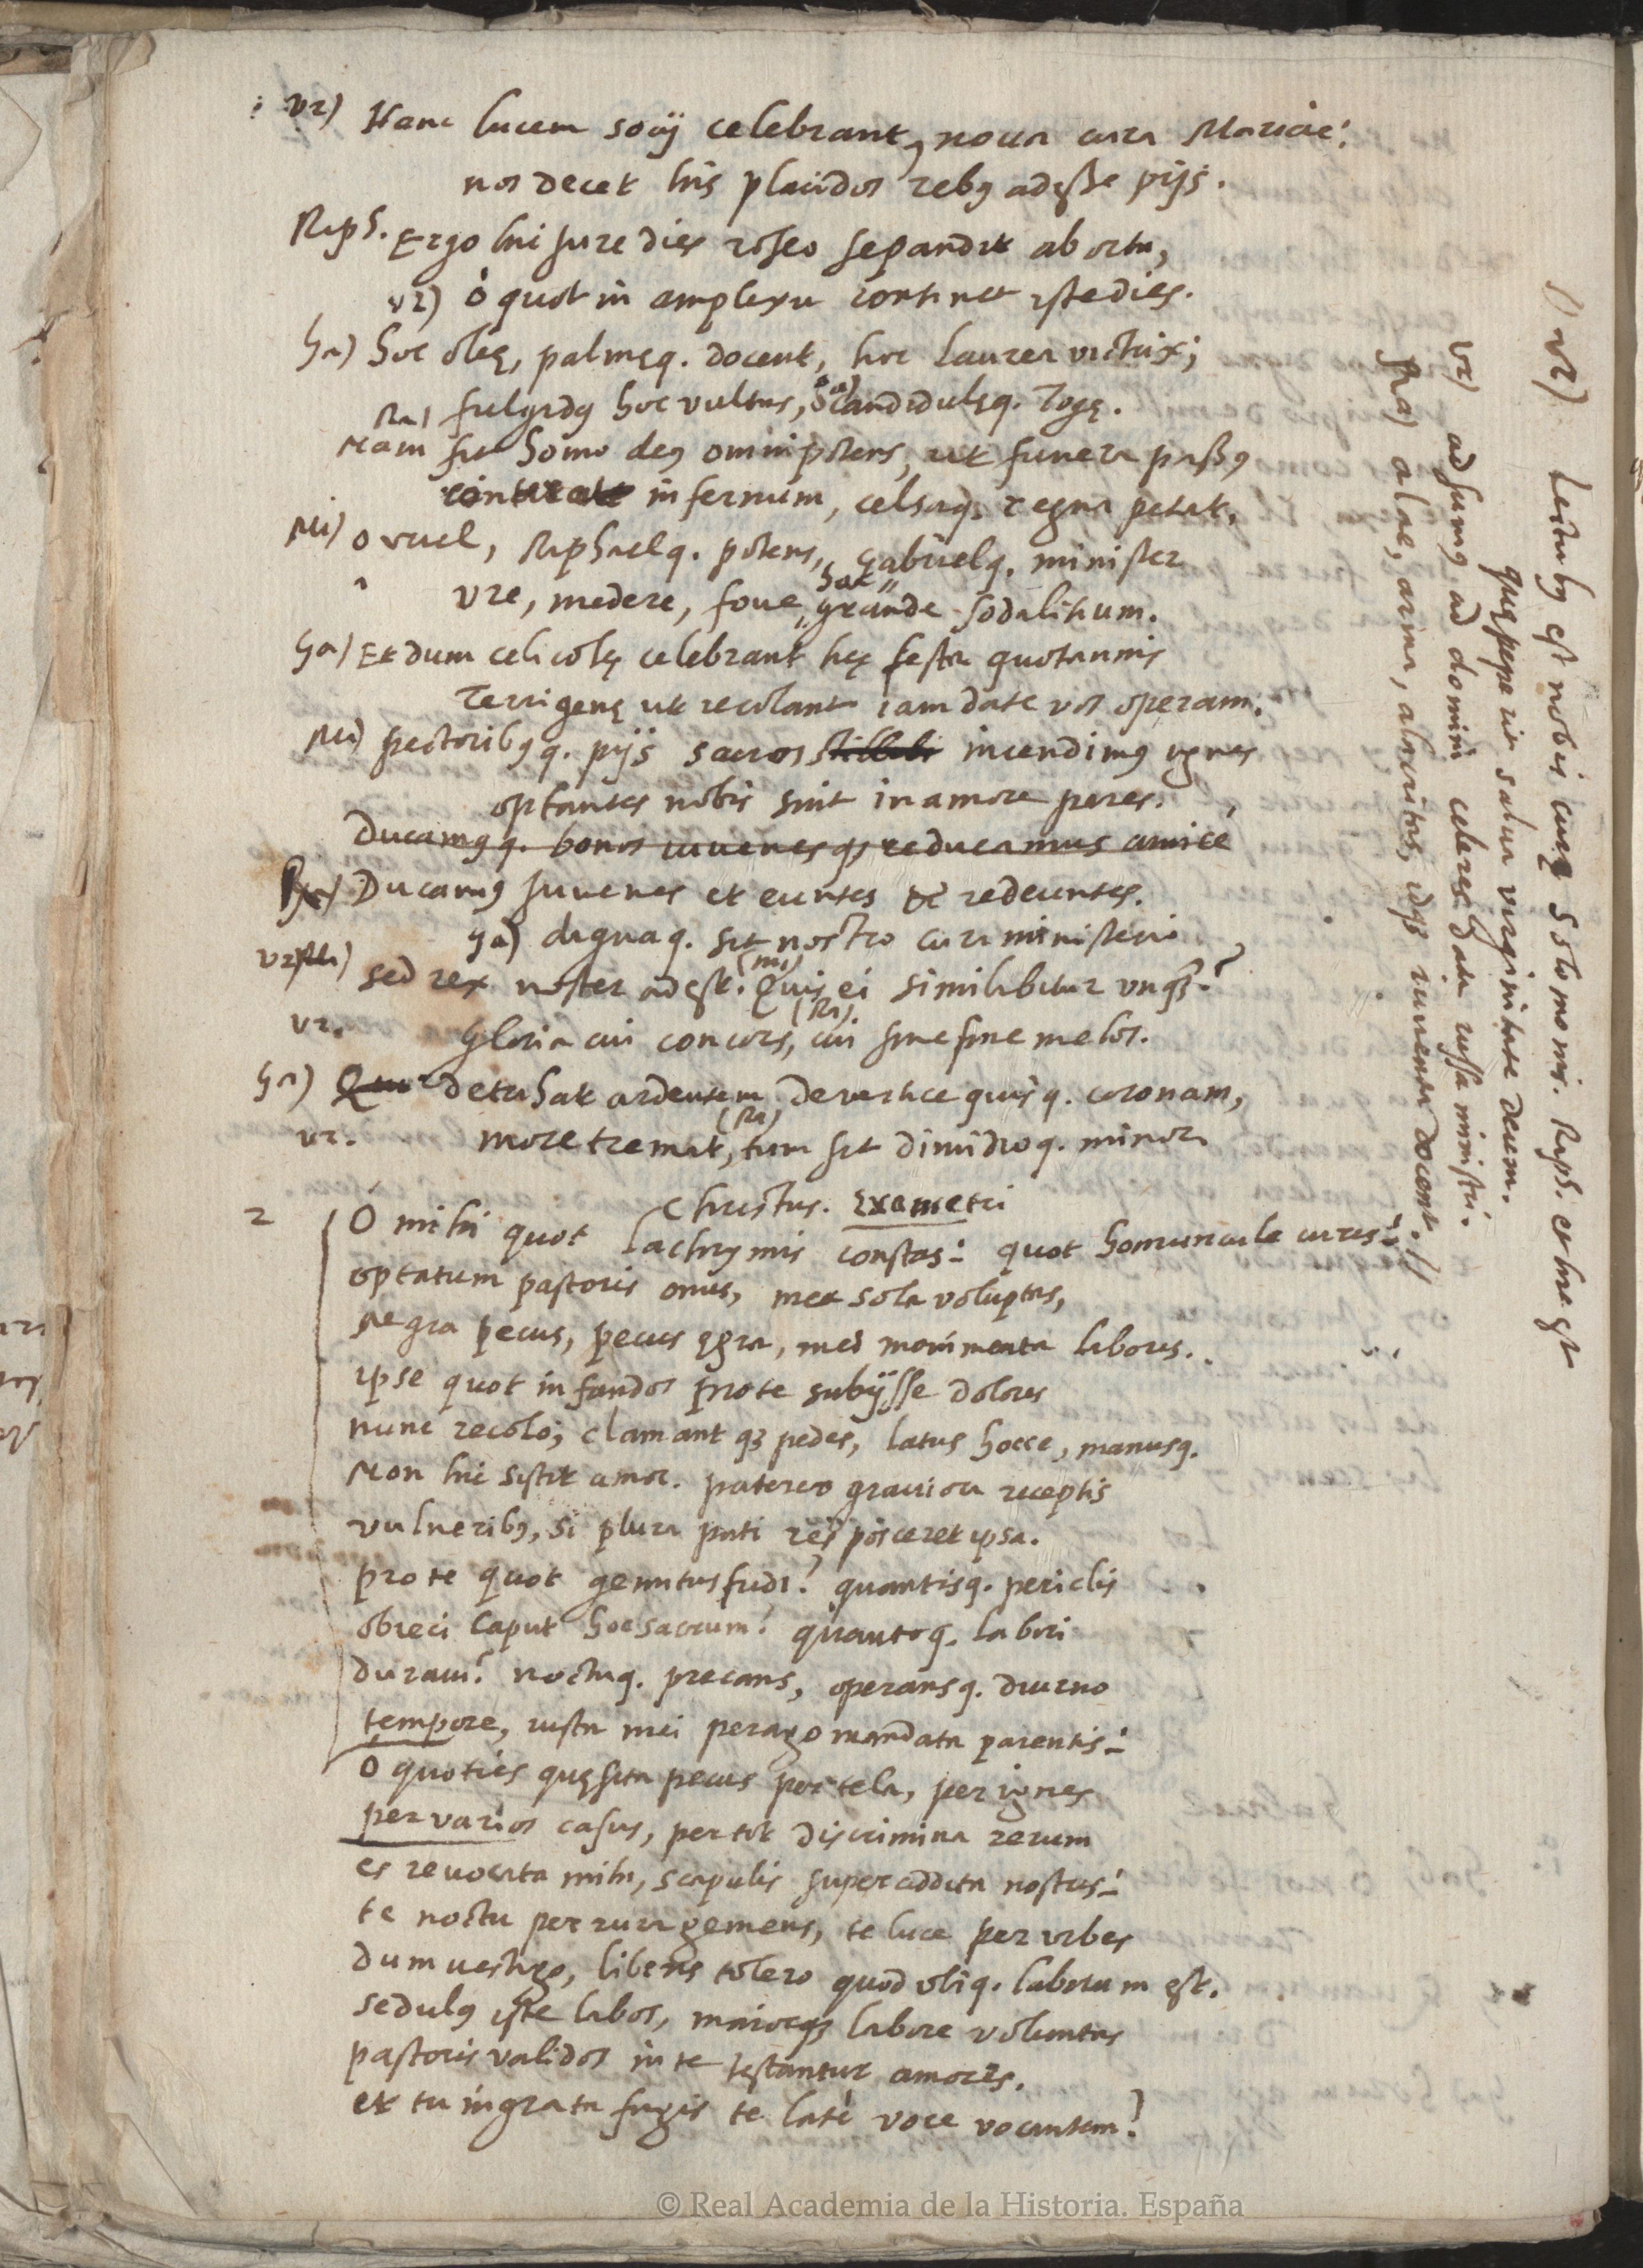 vr) Hanc lucem socij celebrant, noua cura Mariae:
nos decet his placidos rebus adesse pijs.
Raph. Ergo hic jure dies roseo se pandit ab ortu,
vr) ò quot in amplexu continet iste dies.
Ga) hoc oleę, palmęq. docent, hoc laurea victrix;
Ra) fulgidus hoc vultus, candidulęq. togę.
Nam fit homo deus omnipotens, ut funera passus
infernum, celsaq. regna petat.
Mi) o vriel, Raphaelq. potens, gabrielq. minister
vre, medere, foue, hoc grande sodalitium.
Ga) Et dum celicolę celebrant hęc festa quotannis
Terrigenę ut recolant iam date vos operam.
Mi) pectoribusq. pijs sacros incendimus ignes
optantes nobis sint in amore pares.
Ducamusq. bonos iuuenesq; reducamus amicè
Ducamus juuenes et euntes & redeuntes.
ga) dignaq. sit nostro cura ministerio
vr) sed rex noster adest. (mi) Quis ei similabitur vnq̃?
vr. Gloria cui concors, (Ra). cui sine fine melos.
Ga) detrahat ardentem de vertice quisq. coronam,
vr. more tremat, (Ra) tum sit dimidioq. minor
Christus. Exametri
2 O mihi quot lachrymis constas! quot homuncule curis!
optatum pastoris onus, mea sola voluptas,
Aegra pecus, pecus ęgra, mei monimenta laboris.
ipse quot infandos pro te subijsse dolores
nunc recolo; clamantq; pedes, latus hocce, manusq.
Non hic sistit amor. paterer grauiora receptis
vulneribus, si plura pati res posceret ipsa.
pro te quot gemitus fudi? quantisq. periclis
obieci caput hoc sacrum? quantoq. labori
duraui? noctuq. precans, operansq. diurno
tempore, iusta mei perago mandata parentis!
O quoties quęsita pecus per tela, per ignes
per varios casus, per tot discrimina rerum
es reuocata mihi, scapulis superaddita nostris!
te noctu per rura gemens, te luce per vrbes
dum vestigo, libens tolero quod vbiq. laborum est.
sedulus iste labos, maiorq; labore voluntas
pastoris validos in te testantur amores.
et tu ingrata fugis te latè voce vocantem?
vr) Lectus est nobis cura Solomonis. Raph. et hic est
quę peperit salua virginitate deum.
vr) adsumus ad domini celeres data iussa ministri.
Ra) alae, arma, alacritas, idq; iuuenta docent.
© Real Academia de la Historia. España